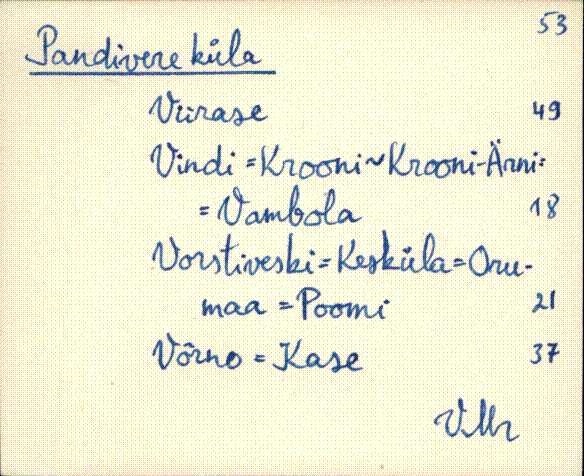 53
Pandivere küla
Viirase 49
Vindi = Krooni ~ Krooni-Ärni =
= Vambola 18
Vorstiveski = Kesküla = Oru-
maa = Poomi 21
Võrno = Kase 37
VMr